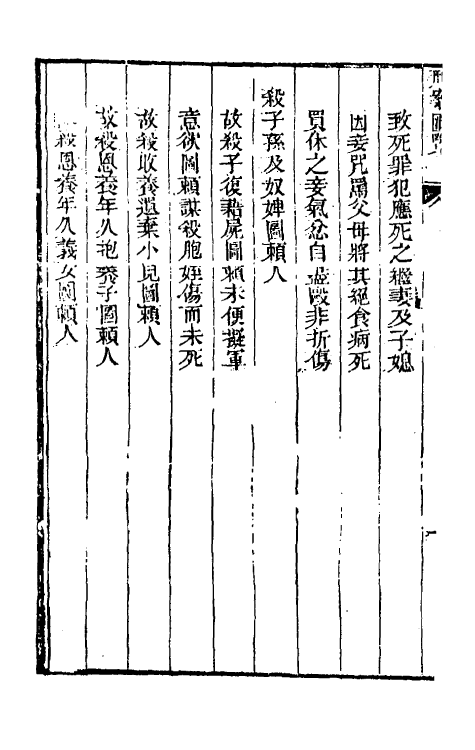 致死罪犯應死之繼妻及子媳
因妾咒罵父母將其絕食病死
買休之妾氣忿自盡毆非折傷
殺子孫及奴婢圖賴人
故殺子復藉屍圖賴未便擬軍
意欲圖賴謀殺胞姪傷而未死
故殺收養遺棄小兒圖賴人
故殺恩養年久抱養子圖賴人
殺恩養年久義女圖賴人